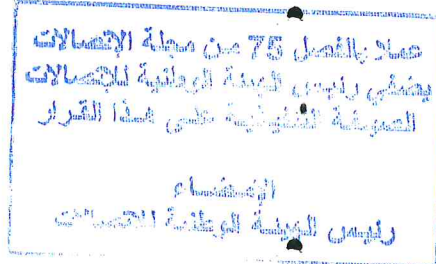 عملا بالفصل 75 من مجلة الإتصالات
يمضي رئيس الهيئة الوطنية للإتصالات
الصيغة التنفيذية على هذا القرار
الإمضاء
رئيس الهيئة الوطنية للاتصالات